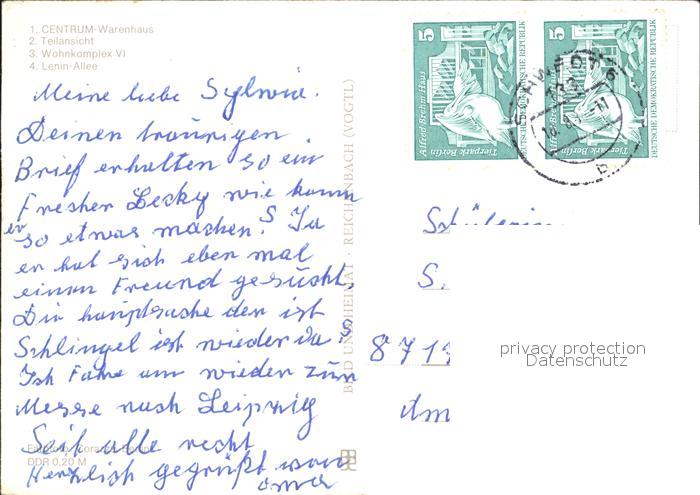 1. CENTRUM-Warenhaus
2. Teilansicht
3. Wohnkomplex VI
4. Lenin-Allee
Meine liebe Sylwia.
Deinen traurigen
Brief erhalten so ein
Frecher Lecky wie kann
er
so etwas machen. Ja
er hat sich eben mal
einen Freund gesucht,
Die hauptsache der ist
Schlingel ist wieder da
Ich Fahre am wieder zur
Messe nach Leipzig
Seit alle recht
Herzlich gegrüßt von
oma
DDR 0,20 M
BILD UND HEIMAT · REICHENBACH (VOGTL)
5
Alfred Brehm Haus
Tierpark Berlin
DEUTSCHE DEMOKRATISCHE REPUBLIK
5
Tierpark Berlin
DEUTSCHE DEMOKRATISCHE REPUBLIK
Schülerin
S.
871
Am
privacy protection
Datenschutz